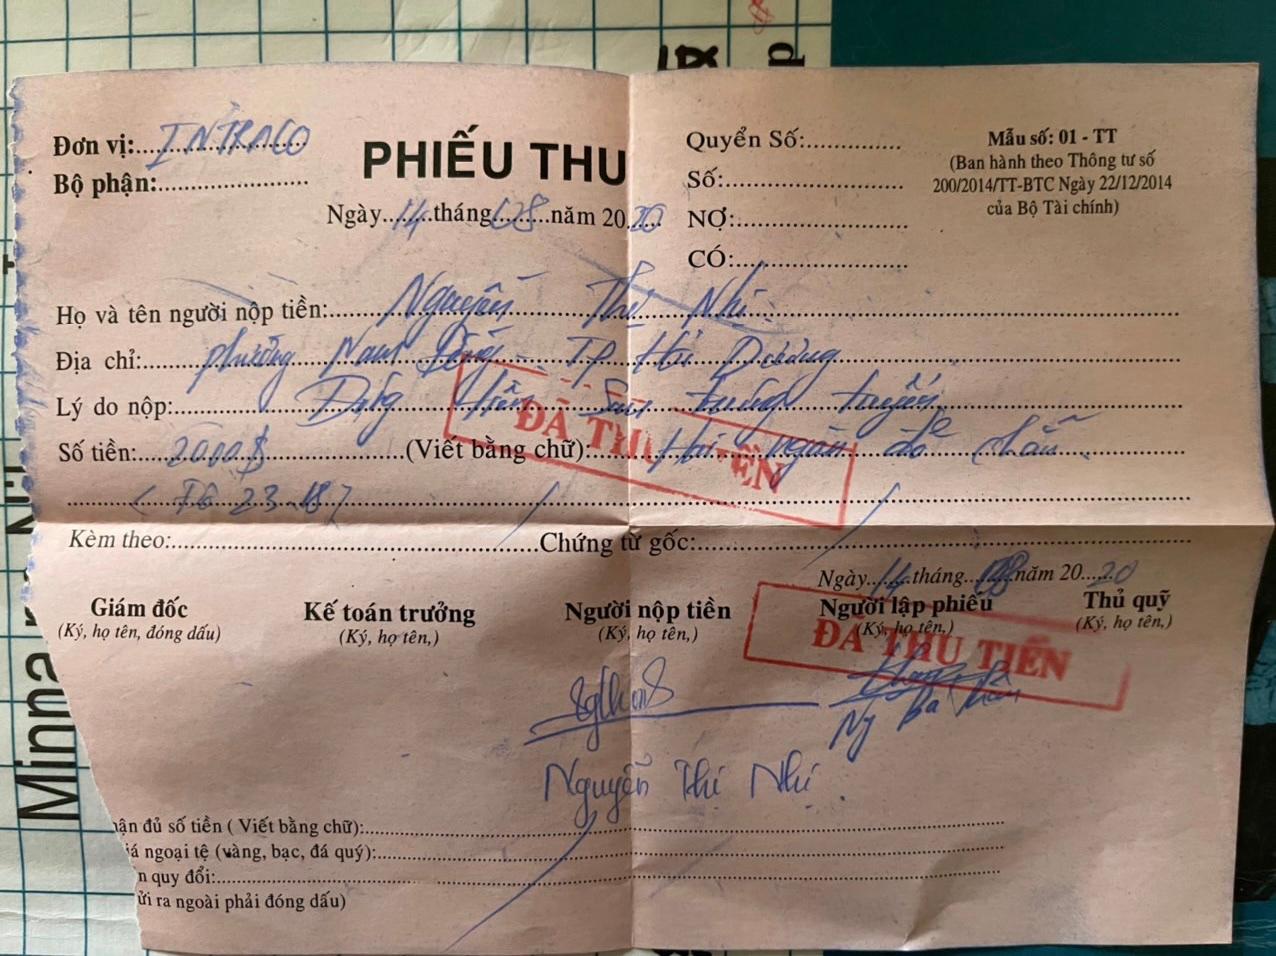 Đơn vị:.....INTRACO
Bộ phận:.....
PHIẾU THU
Ngày 14 tháng 08 năm 2020
Quyển Số:.....
Số:.....
NỢ:.....
CÓ:.....
Mẫu số: 01 - TT
(Ban hành theo Thông tư số
200/2014/TT-BTC Ngày 22/12/2014
của Bộ Tài chính)
Họ và tên người nộp tiền: Nguyễn Thị Nhị
Địa chỉ: phường Nam Đồng. TP Hải Dương
Lý do nộp: tiền sau trúng tuyển
Số tiền: 2000$ (Viết bằng chữ): Hai ngàn đô chẵn
( TG 23.18 )
Kèm theo:.....Chứng từ gốc:.....
Ngày 14 tháng 08 năm 2020
Giám đốc
(Ký, họ tên, đóng dấu)
Kế toán trưởng
(Ký, họ tên,)
Người nộp tiền
(Ký, họ tên,)
Người lập phiếu
(Ký, họ tên,)
Thủ quỹ
(Ký, họ tên,)
ĐÃ THU TIỀN
ĐÃ THU TIỀN
Ng Bá
Nguyễn Thị Nhị
đủ số tiền ( Viết bằng chữ):.....
ngoại tệ (vàng, bạc, đá quý):.....
quy đổi:.....
ra ngoài phải đóng dấu)
Minna